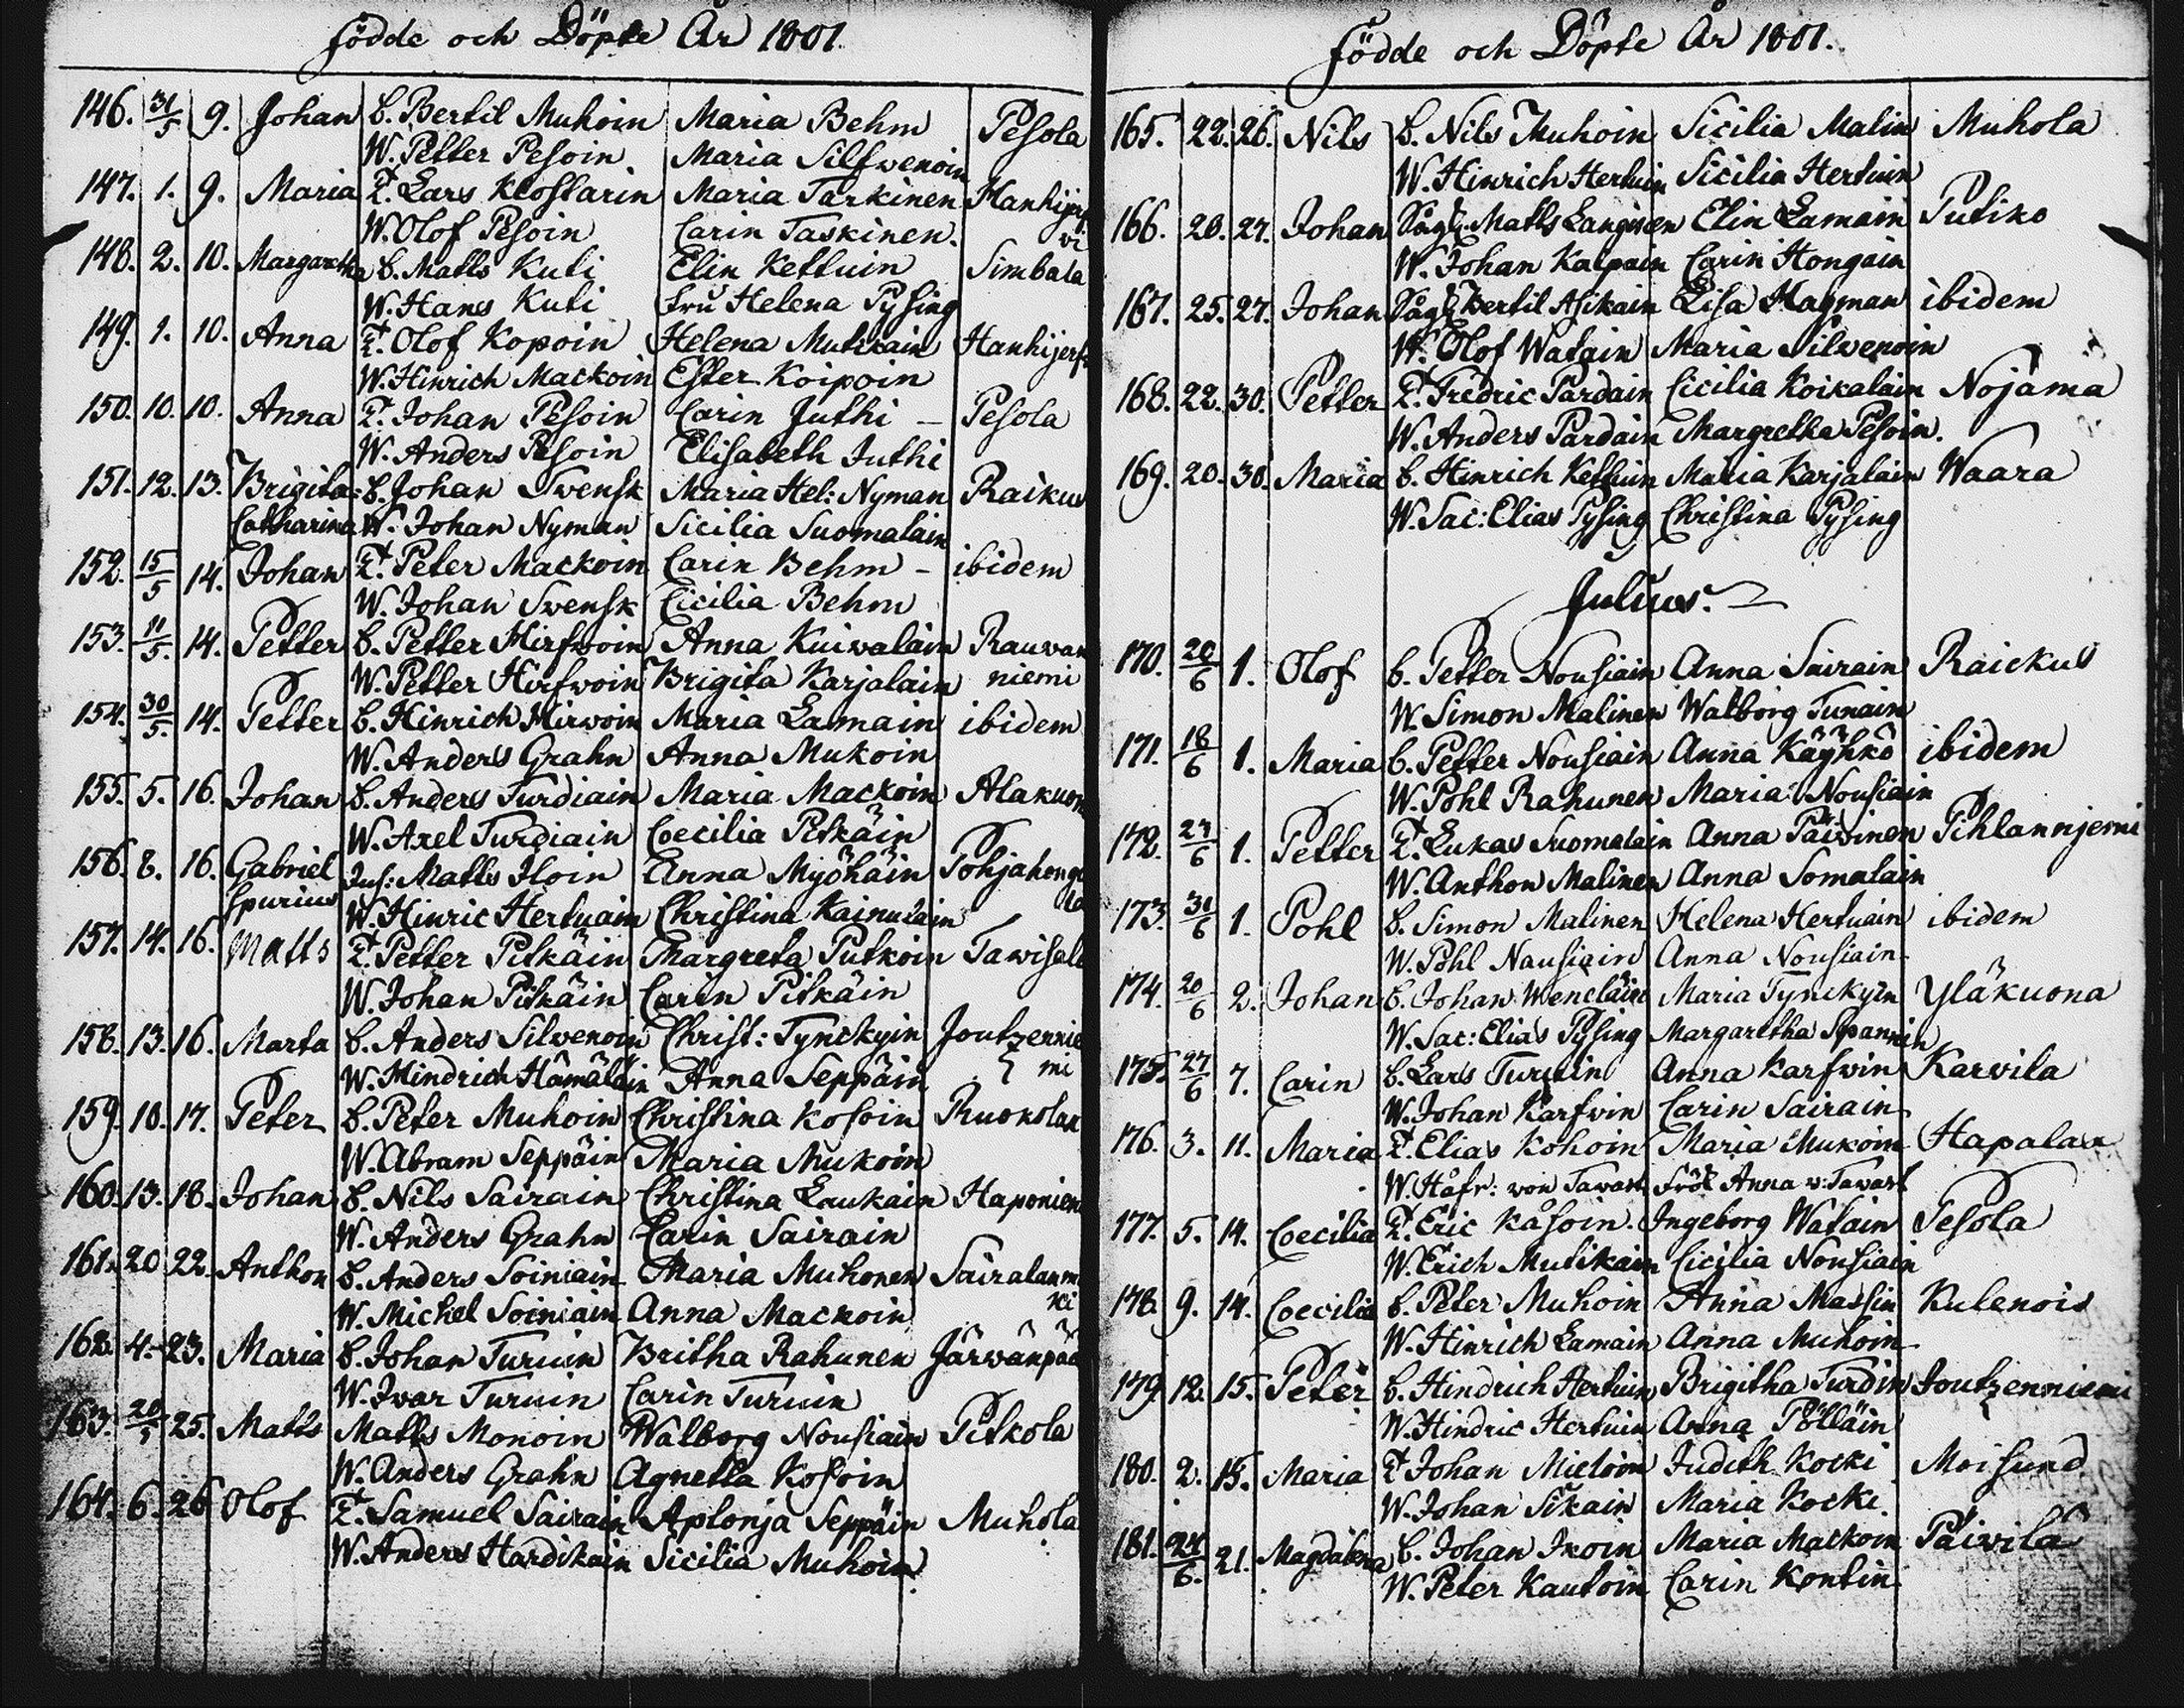 födde och Döpte År 1801.
146. 31/5 9. Johan b. Bertil Muhoin Maria Behm Pesola
W. Petter Pesoin Maria Silfwenoin
147. 1. 9. Maria T. Lars Klostarin Maria Tarkinen Hanhijerf
W. Olof Pesoin Carin Taskinen. wi
148. 2. 10. Margaretha b. Matts Kuti Elin Kettuin Simbala
W. Hans Kuti Fru Helena Pysing
149. 1. 10. Anna T. Olof Kopoin Helena Mutikain Hanhijerf
W. Hinrich Mackoin Ester Koipoin
150. 10. 10. Anna T. Johan Pesoin Carin Juthi – Pesola
W. Anders Pesoin Elisabeth Juthi
151. 12. 13. Brigita: b. Johan Svensk Maria Hel: Nyman Raikus
Catharina W. Johan Nyman Sicilia Suomalain
152. 15/5 14. Johan T. Peter Mackoin Carin Behm – ibidem
W. Johan Svensk Cicilia Behm
153. 11/5. 14. Petter b. Petter Hirfwoin Anna Kuivalain Rauvan
W. Petter Hirfwoin Brigita Karjalain niemi
154. 30/5. 14. Petter b. Hinrich Hirwoin Maria Lamain ibidem
W. Anders Grahn Anna Mukoin
155. 5. 16. Johan b. Anders Turdiain Maria Mackoin Alakuon
W. Axel Turdiain Coecilia Pitkäin
156. 8. 16. Gabriel Matts Iloin Anna Myöhäin Pohjahong
spurius W. Hinric Hertuain Christina Kainulain la
157. 14. 16. Matts T. Petter Pitkäin Margreta Putkoin Tawisal
W. Johan Pitkäin Carin Pitkäin
158. 13. 16. Marta b. Anders Silwenoin Christ: Tynckyin Joutzennie
W. Hindrich Hämäläin Anna Seppäin mi
159. 10. 17. Peter b. Peter Muhoin Christina Kosoin Ruokolax
W. Abram Seppäin Maria Mukoin
160. 13. 18. Johan b. Nils Sairain Christina Laukain Haponiem
W. Anders Grahn Carin Sairain
161. 20 22. Anthon b. Anders Soiniain Maria Muhonen Sairalanm
W. Michel Soiniain Anna Mackoin ki
162. 4. 23. Maria b. Johan Turuin Britha Rahunen Järwänpää
W. Ivar Turuin Carin Turuin
163. 20/5 25. Matts Matts Monoin Walborg Nousiain Pitkola
W. Anders Grahn Agnetta Kosoin
164. 6. 26 Olof T. Samuel Sairain Aplonja Seppäin Muhola
W. Anders Hardikain Sicilia Muhoin
födde och Döpte År 1801.
165. 22. 26. Nils b. Nils Muhoin Sicilia Malin Muhola
W. Hinrich Hertuin Sicilia Hertuin
166. 20. 27. Johan Matts Langinen Elin Lamain Putiko
W. Johan Kalpain Carin Hongain
167. 25. 27. Johan Bertil Asikain Lisa Hagman ibidem
W. Olof Watain Maria Silwenoin
168. 22. 30. Petter T. Fredric Pardain Cicilia Koikalain Nojama
W. Anders Pardain Margretha Pesoin.
169. 20. 30. Maria b. Hinrich Kettuin Maria Karjalain Waara
W. Sac: Elias Pysing Christina Pysing
Julius.
170. 20/6 1. Olof b. Petter Nousiain Anna Sairain Raickus
W. Simon Malinen Walborg Tunain
171. 18/6 1. Maria b. Petter Nousiain Anna Käyhkö ibidem
W. Pohl Rahunen Maria Nousiain
172. 27/6 1. Petter T. Lukas Suomalain Anna Päiwinen Pihlannjemi
W. Anthon Malinen Anna Somalain
173. 31/6 1. Pohl b. Simon Malinen Helena Hertuain ibidem
W. Pohl Nausiain Anna Nousiain
174. 20/6 2. Johan b. Johan Weneläin Maria Tynckyin Yläkuona
W. Sac: Elias Pysing Margaretha Spannin
175. 27/6 7. Carin b. Lars Turuin Anna Karfwin Karvila
W. Johan Karfvin Carin Sairain
176. 3. 11. Maria T. Elias Kohoin Maria Mukoin Hapalax
W. Håfr: von Tawast Frök Anna v: Tawast
177. 5. 14. Coecilia T. Eric Kåsoin. Ingeborg Watain Pesola
W. Erich Mutikain Cicilia Nousiain
178. 9. 14. Coecilia b. Peter Muhoin Anna Massin Kulenois
W. Hinrich Lamain Anna Muhoin
179. 12. 15. Peter b. Hindrich Hertuin Brigitha Turdin Joutzenniemi
W. Hindric Hertuin Anna Pölläin
180. 2. 15. Maria T Johan Mieloin Judith Kocki Moisund
W. Johan Sikain Maria Kocki
181. 24/6. 21. Magdalena b. Johan Ikoin Maria Mackoin Päiwilä
W. Peter Kautoin Carin Kontin